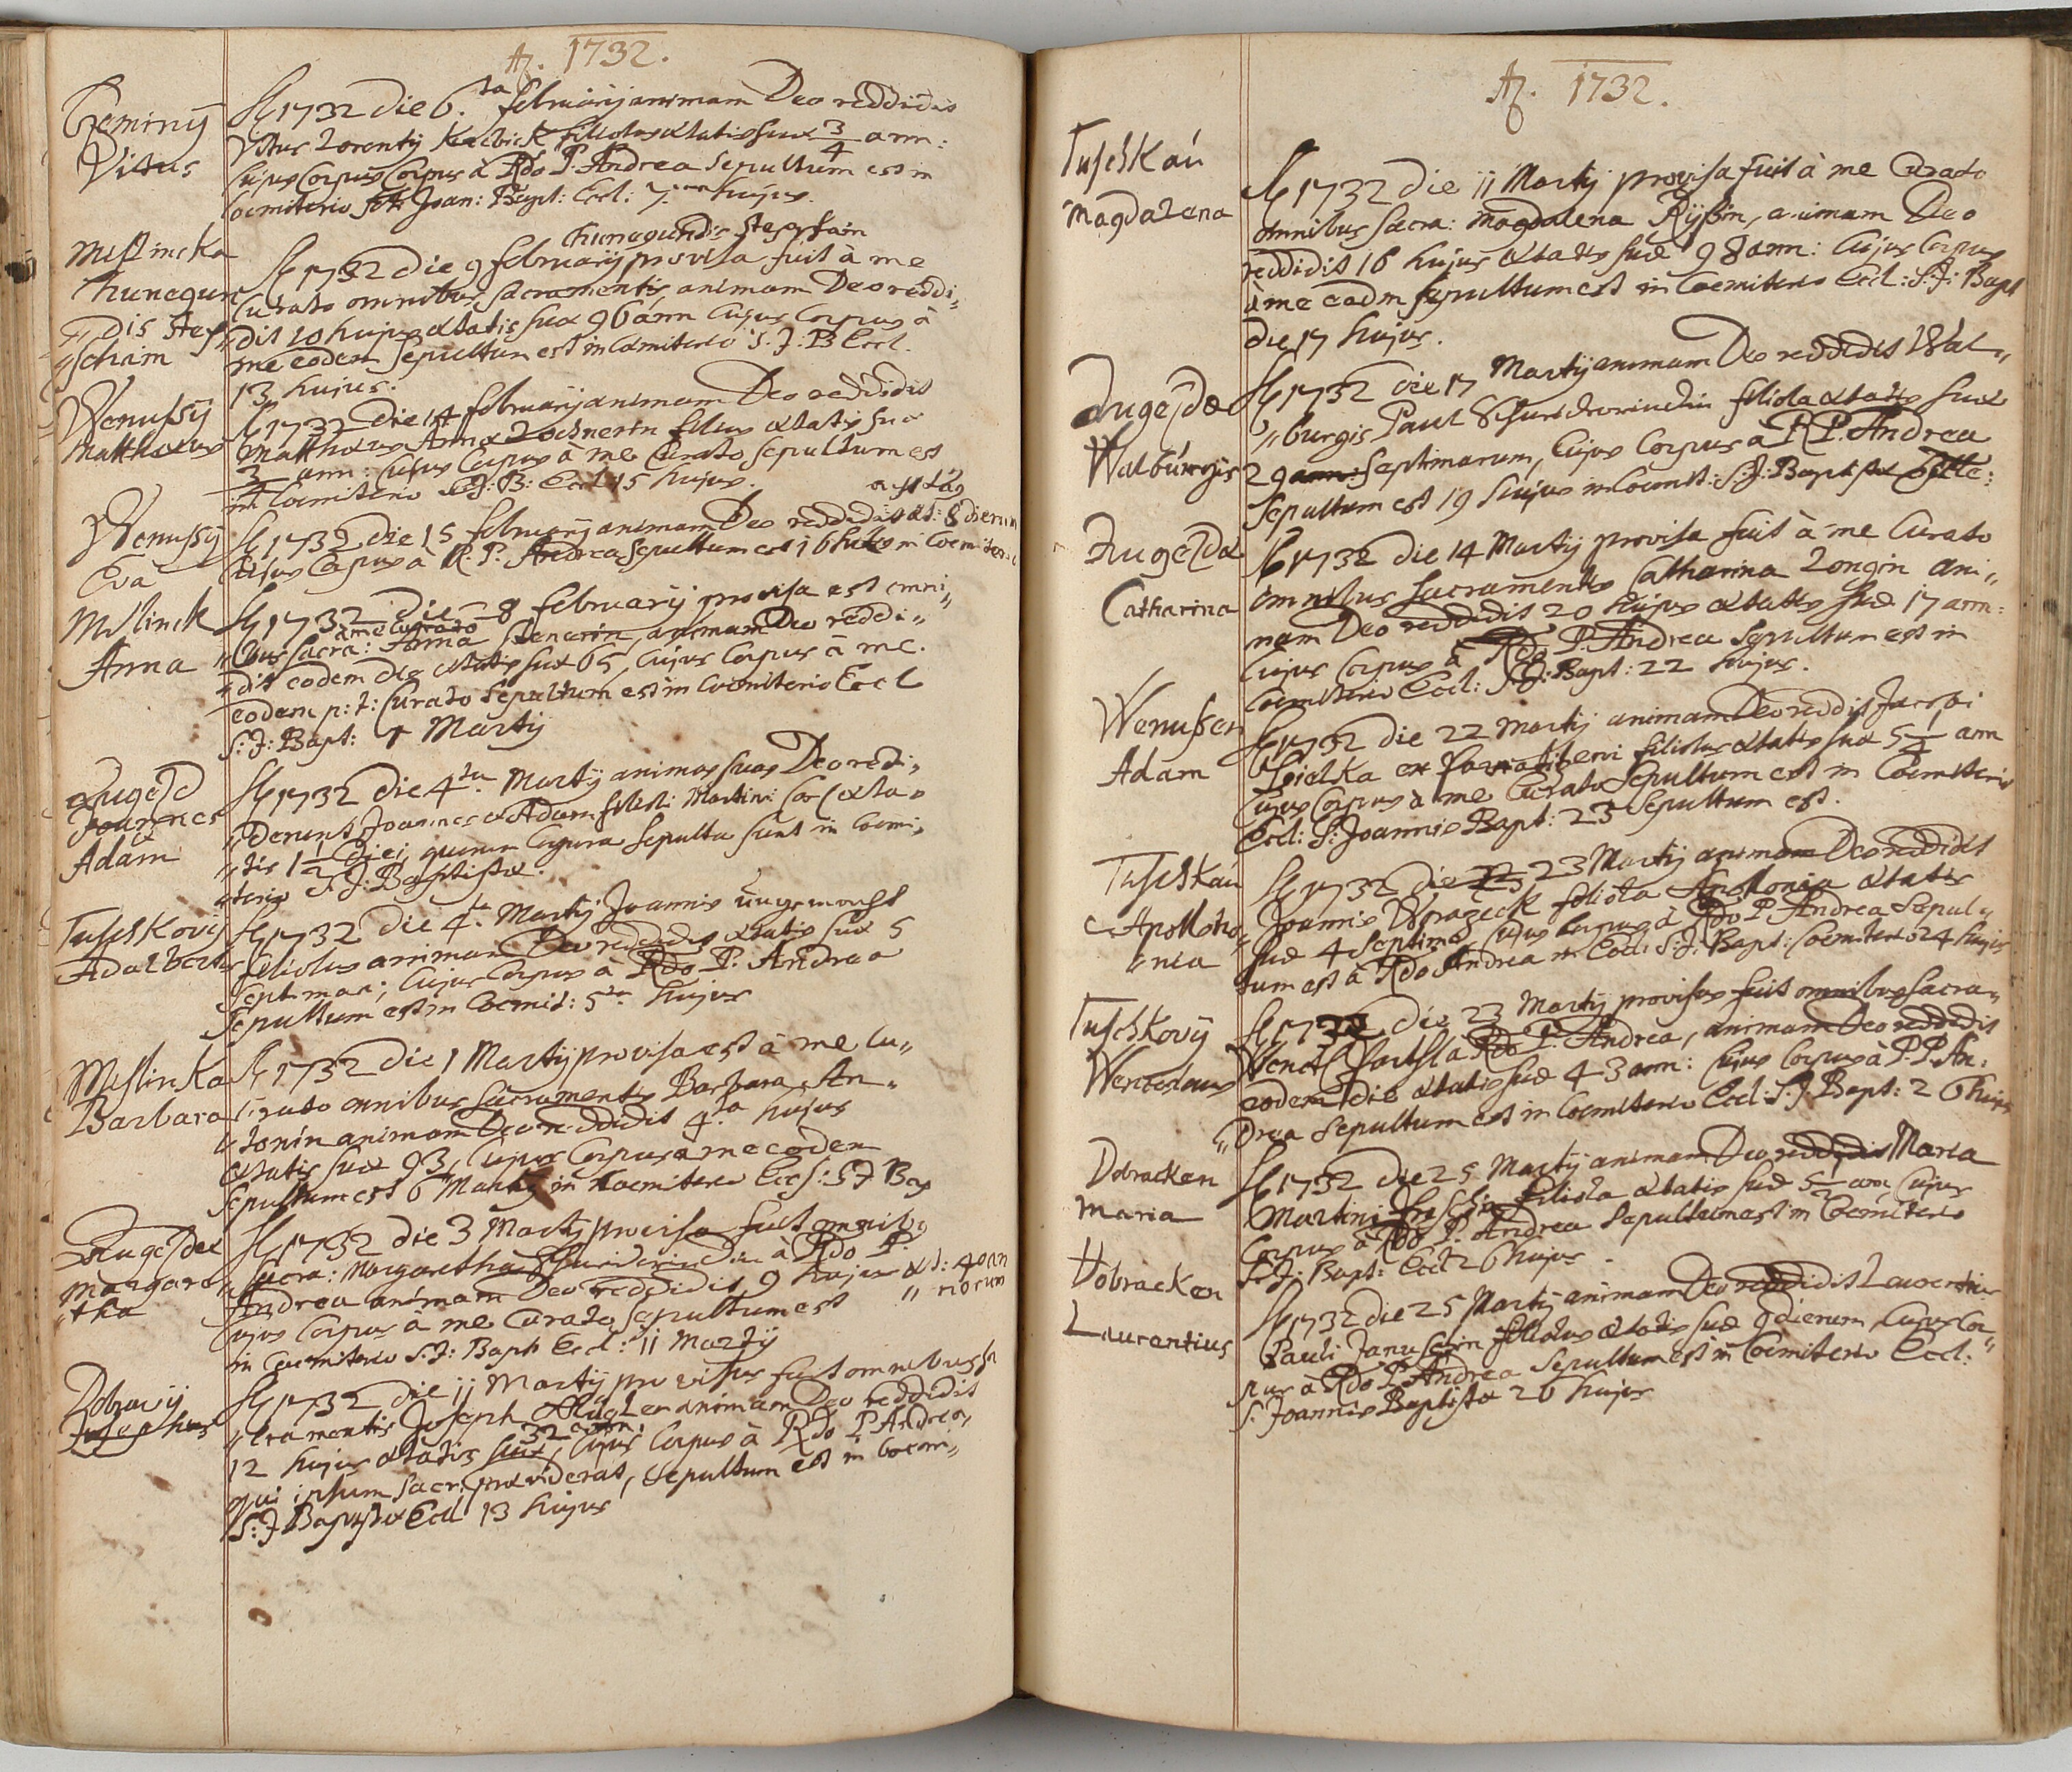 A. 1732.
Czeminÿ
Vitus
A 1732 die 6.ta februarij animam Deo reddidit
Vitus Lorentij filiolus ætatis suæ 3/4 ann:
cujus Corpus Corpus à Rdo P. Andrea Sepultum est in
Coemiterio Joan: Bapt: Eccl: 7. hujus.
Mislincka
Chunegun
dis Step
schain
Chunegundis Stepschain
A 1732 die 9 februarij provisa fuit à me
Curato omnibus sacramentis animam Deo reddi„
„dit 10 hujus ætatis suæ 96 ann Cujus Corpus à
me eodem Sepultum est in Coemiterio S. J. B Eccl.
13 hujus.
Wenussÿ
Matthæus
A 1732 die 14 februarij animam Deo reddidit
Matthæus Annæ Lochnerin filius ætatis suæ
3/4 ann: cujus Corpus à me Curato sepultum est
in Coemiterio S: J: B: Eccl 15 hujus.
Wenussÿ
Eva
A 1732 die 15 februarij animam Deo reddidit æt: 8 dierum
Cujus Corpus à R. P. Andrea Sepultum est 16 hujus in Coemiterio
Mislinck
Anna
A 1732 die 8 februarij provisa est omni„
à me Curato
„bus sacra: Anna Stenerin, animam Deo reddi„
„dit eodem die ætatis suæ 65, cujus Corpus à me.
eodem p: t: Curato Sepultum est in Coemiterio Eccl
S: J: Bapt: 1 Martij
Augezd
Joannes
Adam
A 1732 die 4ta Martij animas suas Deo redi„
„derunt Joannes & Adam filioli Martini æta„
„tis 1 1/2 diei, quorum Corpora Sepulta sunt in Coemi„
„terio S. J: Baptistæ.
Tuschkovÿ
Adalbertus
A 1732 die 4ta Martij Joannis
filiolus animam Deo reddidit ætatis suæ 5
Septiman; cujus Corpus à Rdo P. Andrea
Sepultum est in Coemit: 5ta hujus
Mislinka
Barbara
A 1732 die 1 Martij provisa est à me Cu„
„rato omnibus Sacramentis Barbara An„
„tonin animam Deo reddidit 4ta hujus
ætatis suæ 93, cujus Corpus à me eodem
Sepultum est 6 Martij in Coemiterio Eccl: S J Bap
Augezdec
Margare
„tha
A 1732 die 3 Martij provisa fuit omnibus
Sacra: Margaretha à Rdo P.
Andrea animam Deo reddidit 9 hujus æt: 40 an
„norum
cujus Corpus à me Curato sepultum est
in Coemiterio S. J: Bapt Eccl: 11 Martij
Dobravÿ
Josephus
A 1732 die 11 Martij provisus fuit omnibus Sa
„cramentis Joseph animam Deo reddidit
32 ann
12 hujus ætatis suæ, Cujus Corpus à Rdo P Andrea,
qui ipsum sacr: provideras, Sepultum est in Coemi„
S: J Baptistæ Eccl 13 hujus
A. 1732.
Tuschkaú
Magdalena
A 1732 die 11 Martij provisa fuit à me Curato
omnibus Sacra: Magdalena Rÿssin, animam Deo
reddidit 16 hujus ætatis suæ 98 ann: Cujus Corpus
à me eodm sepultum est in Coemiterio Eccl: S: J: Bapt
die 17 hujus.
Augezdec
Walburgis
A 1732 die 17 Martij animam Deo reddidit Wal„
„burgis Paul filiola ætatis suæ
29 ann: septimanum, Cujus Corpus à R P. Andrea
Sepultum est 19 hujus in Coemit: S: J: Baptistæ
Augezda
Catharina
A 1732 die 14 Martij provisa fuit à me Curato
omnibus Sacramentis Catharina Longin ani„
mam Deo reddidit 20 hujus ætatis suæ 17 ann:
Cujus Corpus à Rdo P. Andrea Sepultum est in
Coemiterio Eccl: S: J: Bapt: 22 hujus.
Wenussen
Adam
A 1732 die 22 Martij animam Deo reddit Jacobi
filiolus ætatis suæ 5 1/4 ann
Cujus Corpus à me Curato Sepultum est in Coemiterio
Eccl: S: Joannis Bapt: 23 Sepultum est.
Tuschkau
Apollo
„nia
A 1732 die 23 Martij animam Deo reddidit
Joannis Wrazeck filiola ætatis
suæ 4 Septima, cujus Corpus à Rdo P Andrea Sepul„
tum est à Rdo Andrea in Eccl: S: J: Bapt: Coemiterio 24 hujus
Tuschkovÿ
Wenceslaus
A 1732 die 23 Martij provisus fuit omnibus sacra„
Wenctl à Rdo P. Andrea, animam Deo reddidit
eodem die ætatis suæ 43 ann: Cujus Corpus à P. P. An„
„drea Sepultum est in Coemiterio Eccl: S. J: Bapt: 26 hujus
Dobracken
Maria
A 1732 die 25 Martij animam Deo reddidit Maria
Martini filiola ætatis suæ 5 1/2 ann cujus
Corpus à Rdo P. Andrea Sepultum est in Coemiterio
S: J: Bapt: Eccl 26 hujus.
Dobracken
Laurentius
A 1732 die 25 Martij animam Deo reddidit Laurentius
Pauli Januschin filiolus ætatis suæ 9 dierum, Cujus Cor„
pus à Rdo P Andrea Sepultum est in Coemiterio Eccl:
S. Joannis Baptistæ 26 hujus